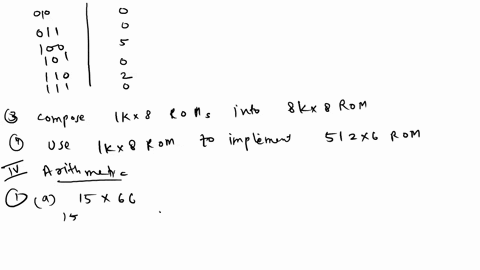 010 | 0
011 | 0
100 | 5
101 | 0
110 | 2
111 | 0
③ Compose 1K×8 ROMs into 8K×8 ROM
④ Use 1K×8 ROM to implement 512×6 ROM
IV Arithmetic
① (a) 15 × 66
15